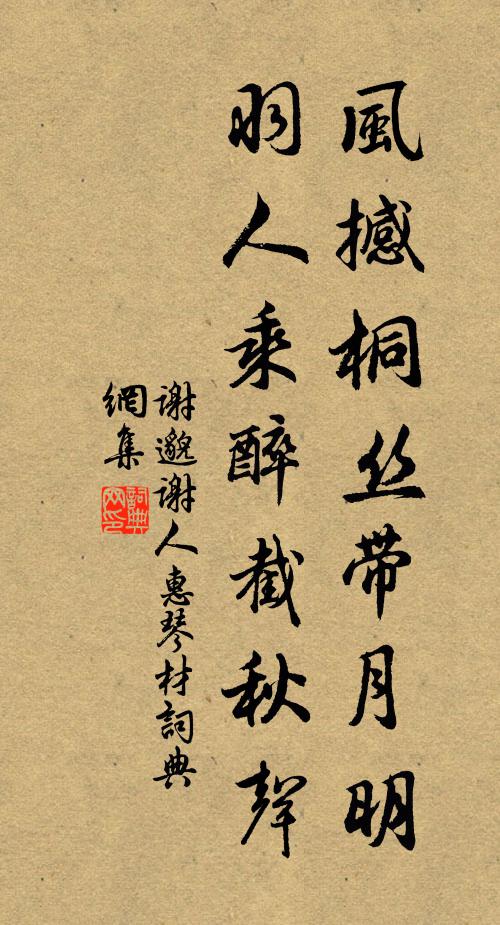 風撼桐丝带月明
羽人乘醉截秋聲
谢邈谢人惠琴材詞典
網集
詞典網印